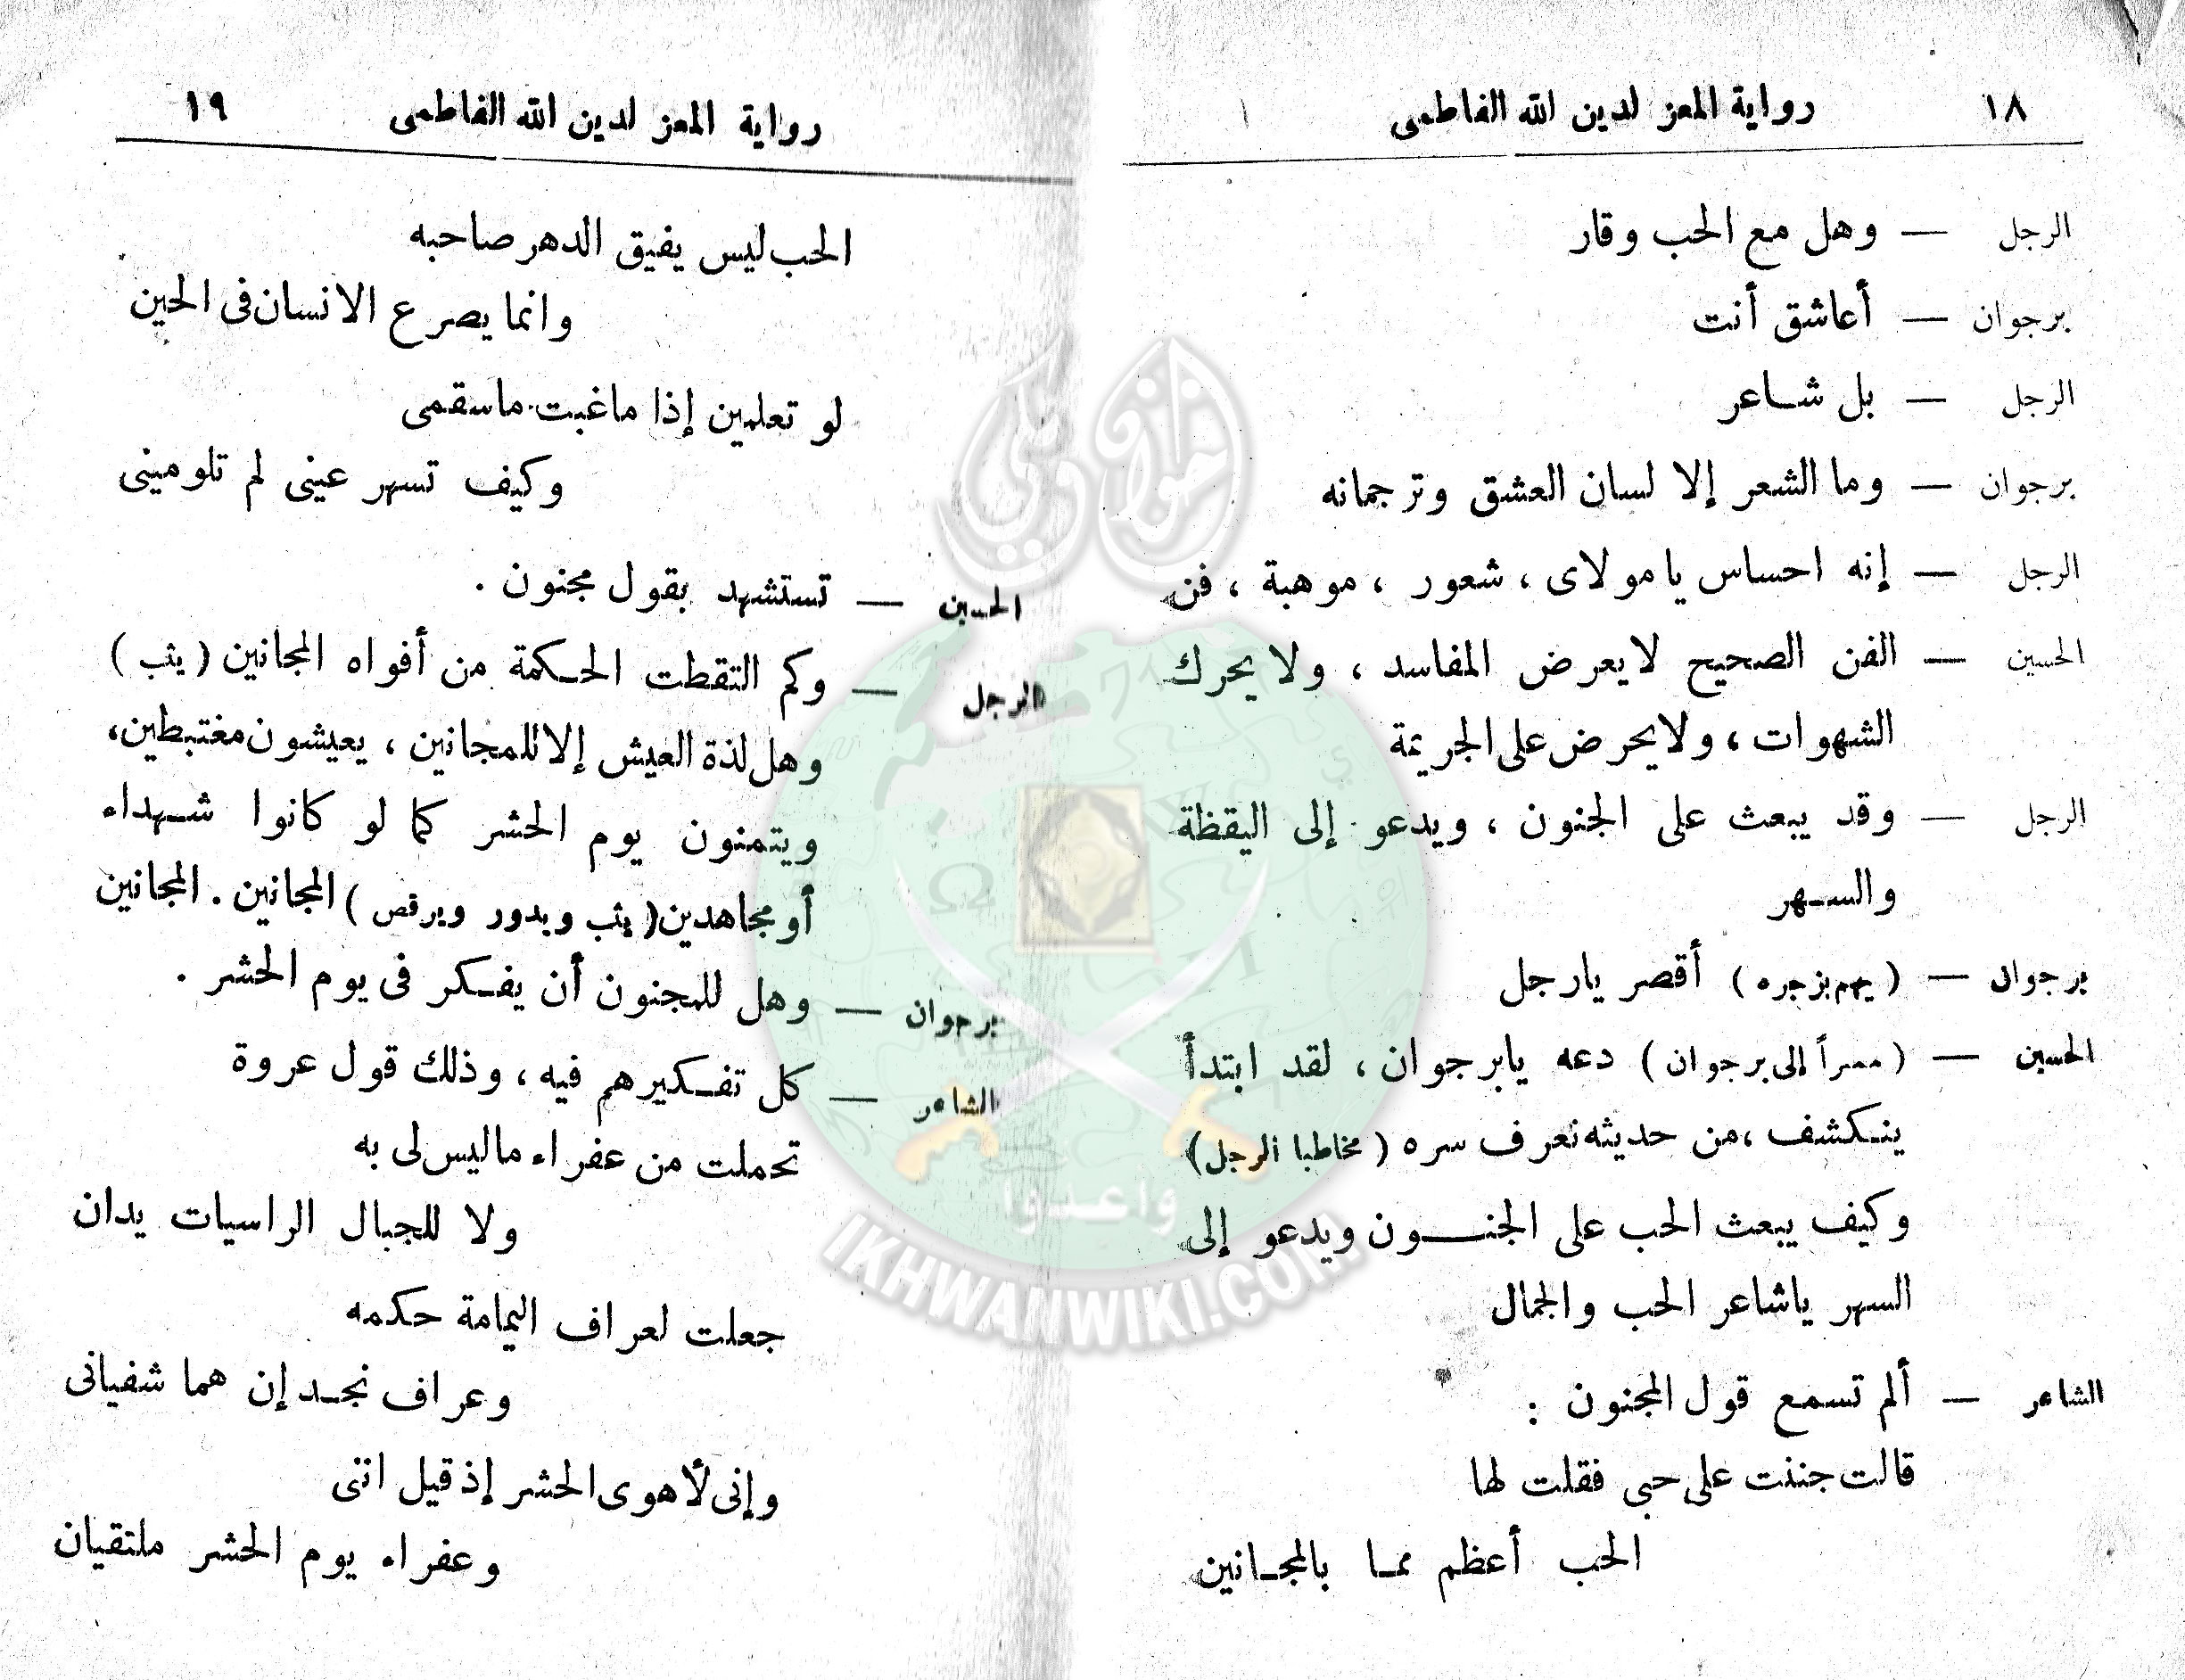 ١٨ رواية المعز لدين الله الفاطمى
الرجل — وهل مع الحب وقار
برجوان — أعاشق أنت
الرجل — بل شاعر
برجوان — وما الشعر إلا لسان العشق وترجمانه
الرجل — إنه احساس يا مولاى ، شعور ، موهبة ، فن
الحسين — الفن الصحيح لا يعرض المفاسد ، ولا يحرك
الشهوات ، ولا يحرض على الجريمة
الرجل — وقد يبعث على الجنون ، ويدعو إلى اليقظة
والسهر
برجوان — ( يهم بزجره ) أقصر يارجل
الحسين — ( مسراً إلى برجوان ) دعه يابرجوان ، لقد ابتدأ
ينكشف ، من حديثه نعرف سره ( مخاطبا الرجل )
وكيف يبعث الحب على الجنون ويدعو إلى
السهر ياشاعر الحب والجمال
الشاعر — ألم تسمع قول المجنون :
قالت جننت على حبى فقلت لها
الحب أعظم مما بالمجانين
رواية المعز لدين الله الفاطمى ١٩
الحب ليس يفيق الدهر صاحبه
وانما يصرع الانسان فى الحين
لو تعلمين إذا ماغبت ماسقمى
وكيف تسهر عينى لم تلومينى
الحسين — تستشهد بقول مجنون .
الرجل — وكم التقطت الحكمة من أفواه المجانين ( يثب )
وهل لذة العيش إلا للمجانين ، يعيشون مغتبطين،
ويتمنون يوم الحشر كما لو كانوا شهداء
أو مجاهدين ( يثب ويدور ويرقص ) المجانين . المجانين
برجوان — وهل للمجنون أن يفكر فى يوم الحشر .
الشاعر — كل تفكيرهم فيه ، وذلك قول عروة
تحملت من عفراء ماليس لى به
ولا للجبال الراسيات يدان
جعلت لعراف اليمامة حكمه
وعراف نجد إن هما شفيانى
وإنى لأهوى الحشر إذ قيل اننى
وعفراء يوم الحشر ملتقيان
إخوان ويكي
واعدوا
IKHWANWIKI.COM